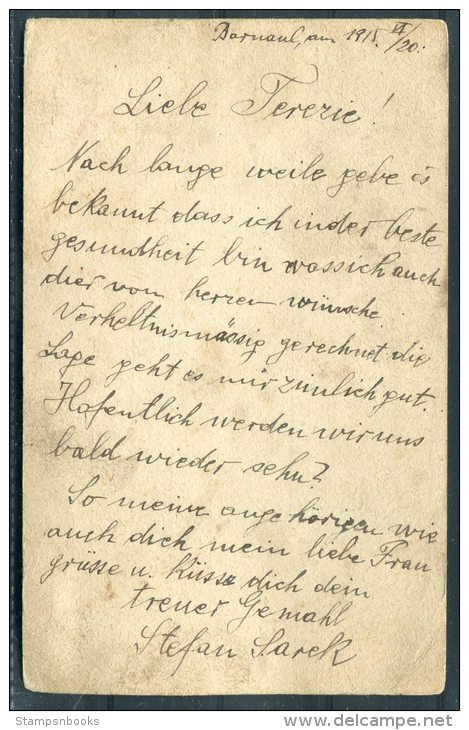 Barnaul, am 1915. VI/20.
Liebe Terezie!
Nach lange weile gebe es
bekannt dass ich in der beste
gesundheit bin wass ich auch
dier vom herzen wünsche.
Verheltnismässig gerechnet die
Lage geht es mir zimlich gut.
Hofentlich werden wir uns
bald wieder sehn?
So meine angehörigen wie
auch dich mein liebe Frau
grüsse u. küsse dich dein
treuer Gemahl
Stefan Sarek
Stampsnbooks
delcampe.net